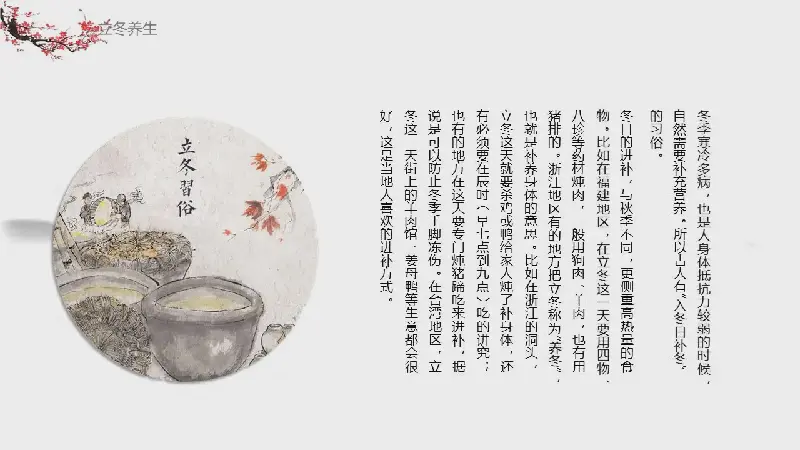 立冬养生
立冬習俗
冬季寒冷多病，也是人身体抵抗力较弱的时候，
自然需要补充营养。所以古人有“入冬日补冬”
的习俗。
冬日的进补，与秋季不同，更侧重高热量的食
物。比如在福建地区，在立冬这一天要用四物、
八珍等药材炖肉，一般用狗肉、羊肉，也有用
猪排的。浙江地区有的地方把立冬称为“养冬”，
也就是补养身体的意思。比如在浙江的洞头，
立冬这天就要杀鸡或鸭给家人炖了补身体，还
有必须要在辰时（早七点到九点）吃的讲究；
也有的地方在这天要专门炖猪蹄吃来进补，据
说是可以防止冬季手脚冻伤。在台湾地区，立
冬这一天街上的羊肉馆、姜母鸭等生意都会很
好，这是当地人喜欢的进补方式。